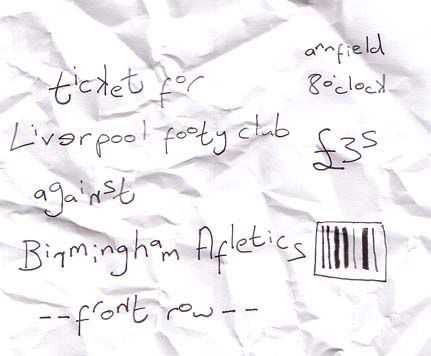 annfield
8o'clock
ticket for
Liverpool footy club
£35
against
Birmingham Afletics
--front row--